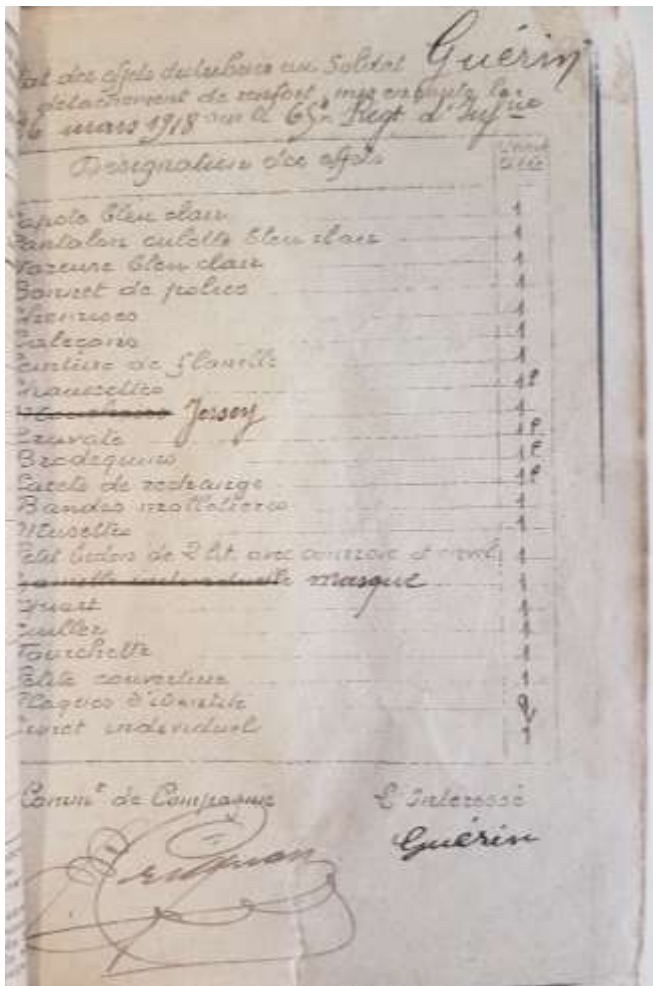 tat des effets distribués au Soldat Guérin
détachement de renfort, mis en route le
16 mars 1918 sur le 65e Regt d'Infrie
Désignation des effets
Capote bleu clair 1
Pantalon culotte bleu clair 1
Vareuse bleu clair 1
Bonnet de police 1
Chemises 1
Caleçons 1
Ceinture de flanelle 1
Chaussettes 1P
Mouchoirs Jersey 1
Cravate 1P
Brodequins 1P
Lacets de rechange 1P
Bandes molletières 1
Musette 1
Petit bidon de 2 lit. avec courroie et 1
Gamelle individuelle masque 1
Quart 1
Cuiller 1
Fourchette 1
Petite couverture 1
Plaques d'identité
Livret individuel 1
Commt de Compagnie L'Intéressé
Guérin